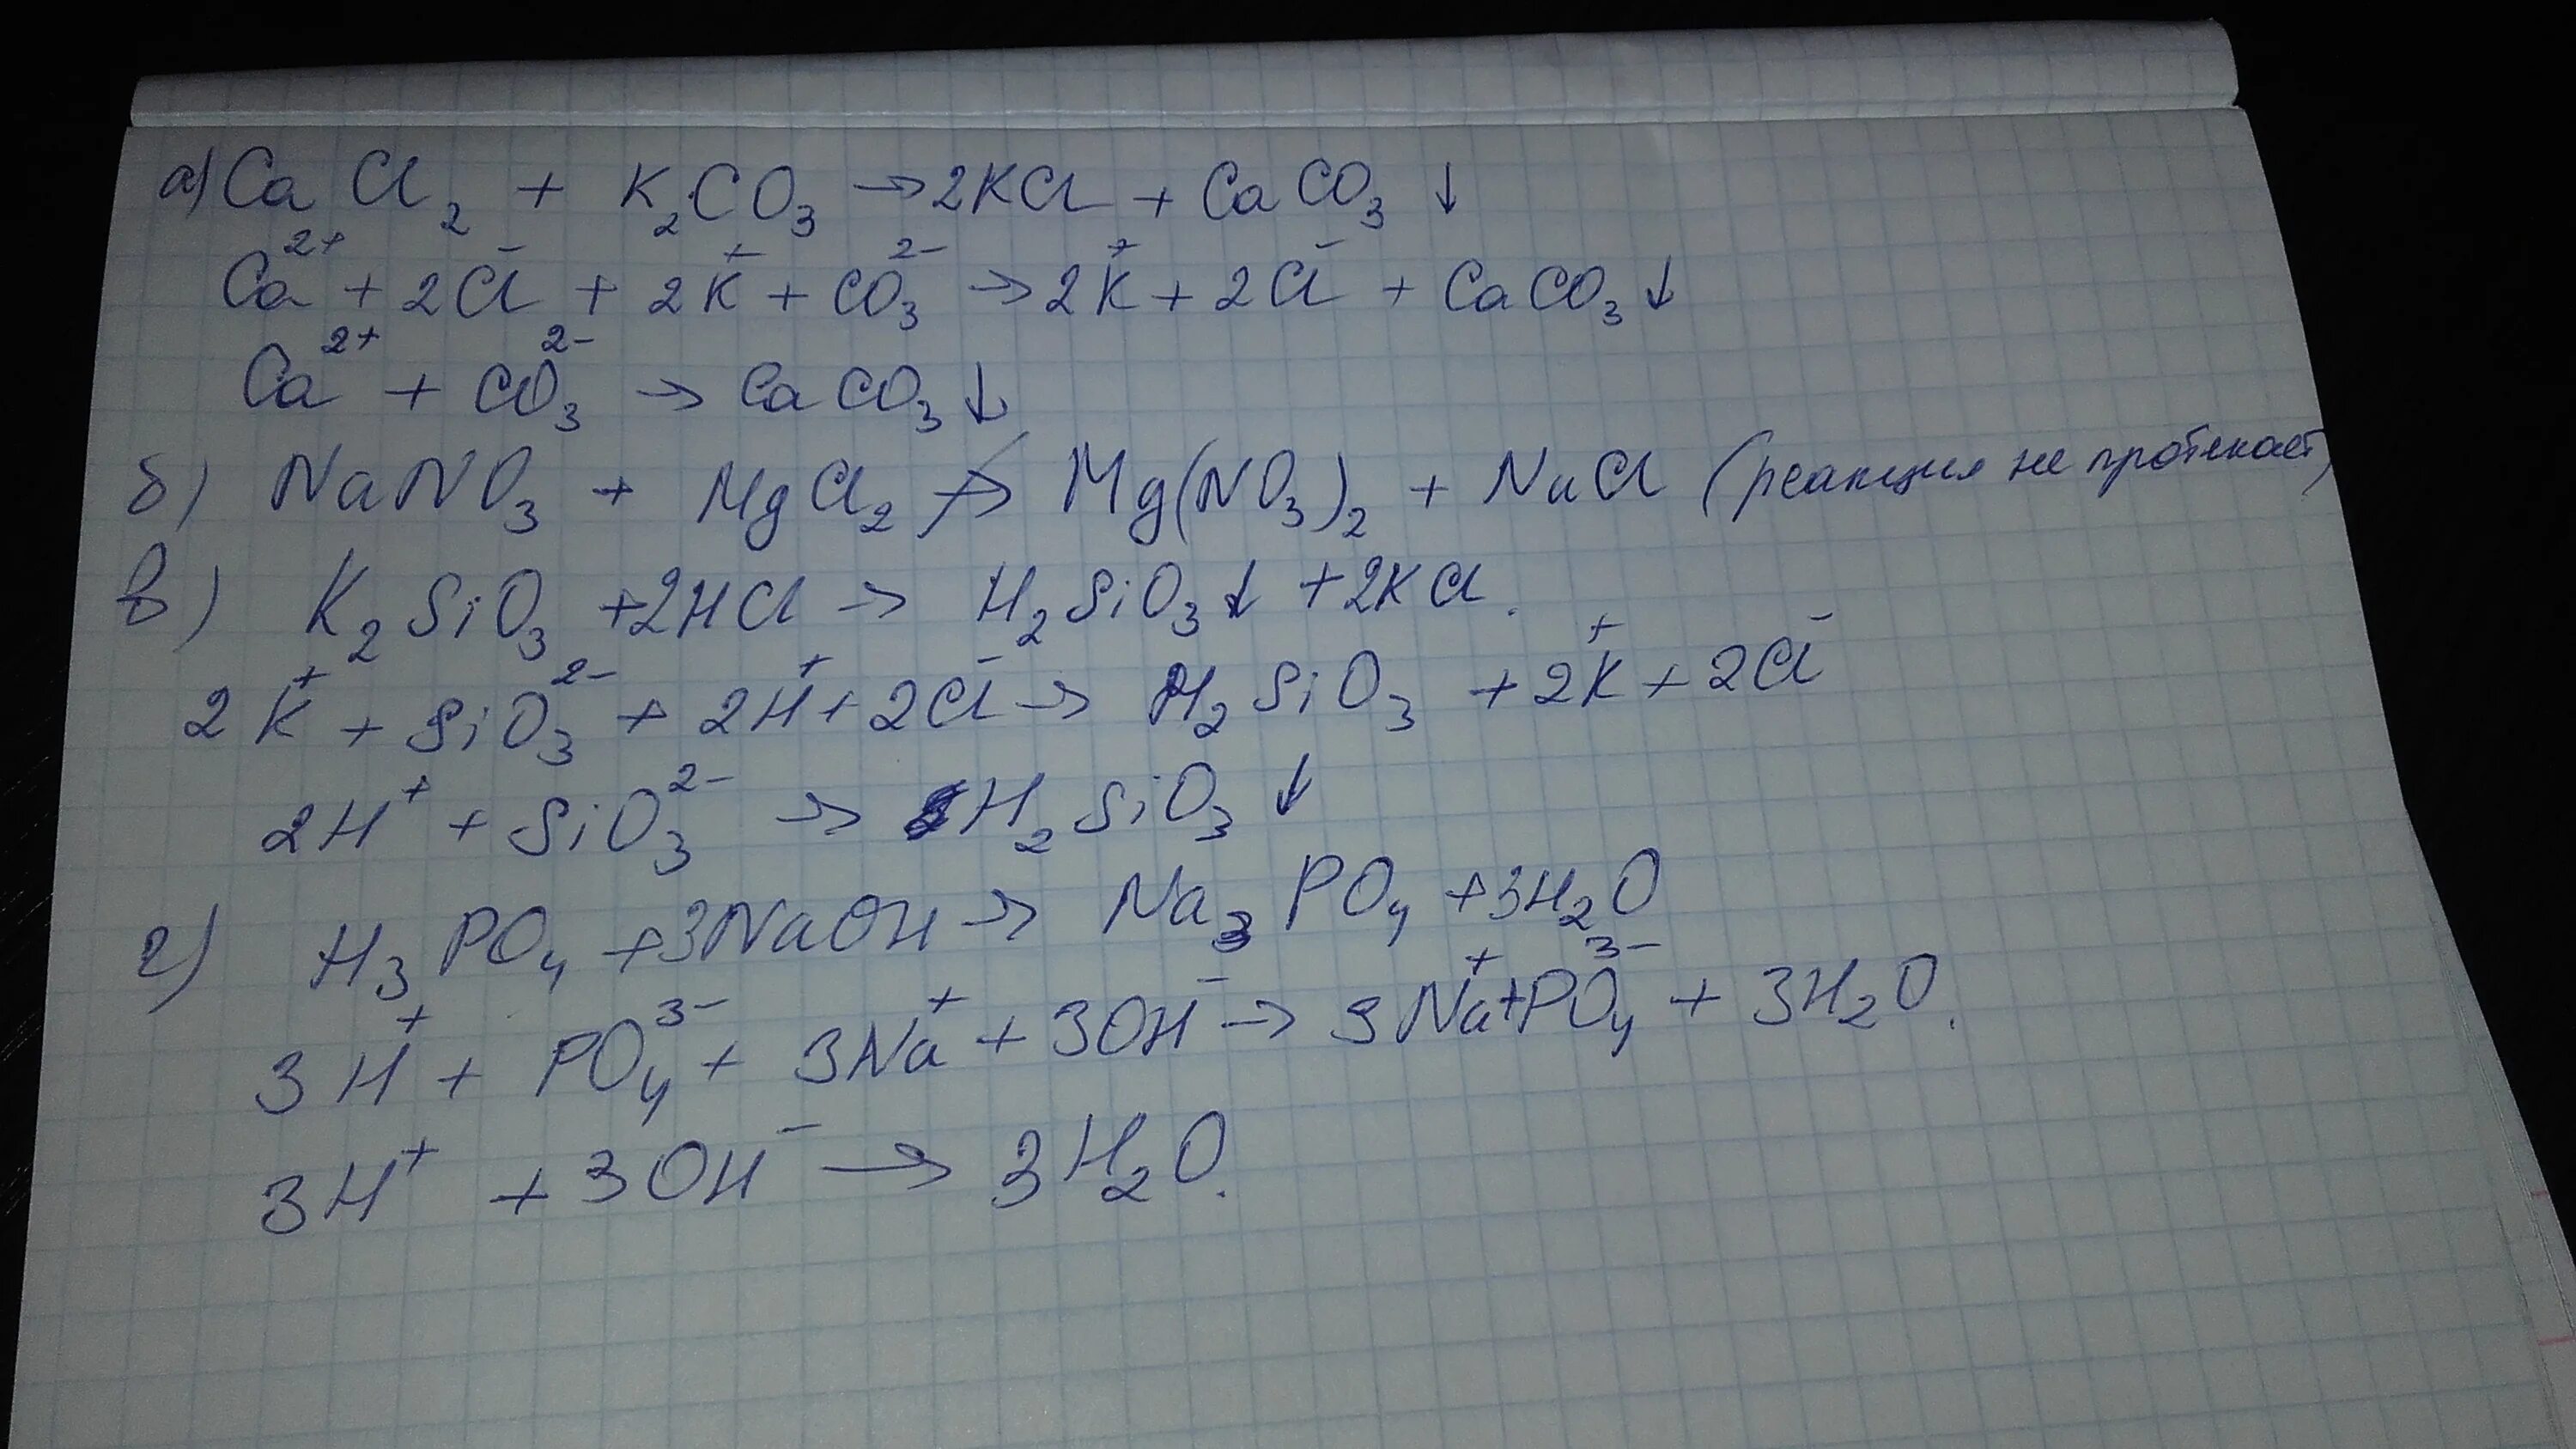 а) CaCl₂ + K₂CO₃ → 2KCl + CaCO₃ ↓
Ca²⁺ + 2Cl⁻ + 2K⁺ + CO₃²⁻ → 2K⁺ + 2Cl⁻ + CaCO₃ ↓
Ca²⁺ + CO₃²⁻ → CaCO₃ ↓
б) NaNO₃ + MgCl₂ ↛ Mg(NO₃)₂ + NaCl (реакция не протекает)
в) K₂SiO₃ + 2HCl → H₂SiO₃ ↓ + 2KCl.
2K⁺ + SiO₃²⁻ + 2H⁺ + 2Cl⁻ → H₂SiO₃ + 2K⁺ + 2Cl⁻
2H⁺ + SiO₃²⁻ → H₂SiO₃ ↓
г) H₃PO₄ + 3NaOH → Na₃PO₄ + 3H₂O
3H⁺ + PO₄³⁻ + 3Na⁺ + 3OH⁻ → 3Na⁺ + PO₄³⁻ + 3H₂O.
3H⁺ + 3OH⁻ → 3H₂O.